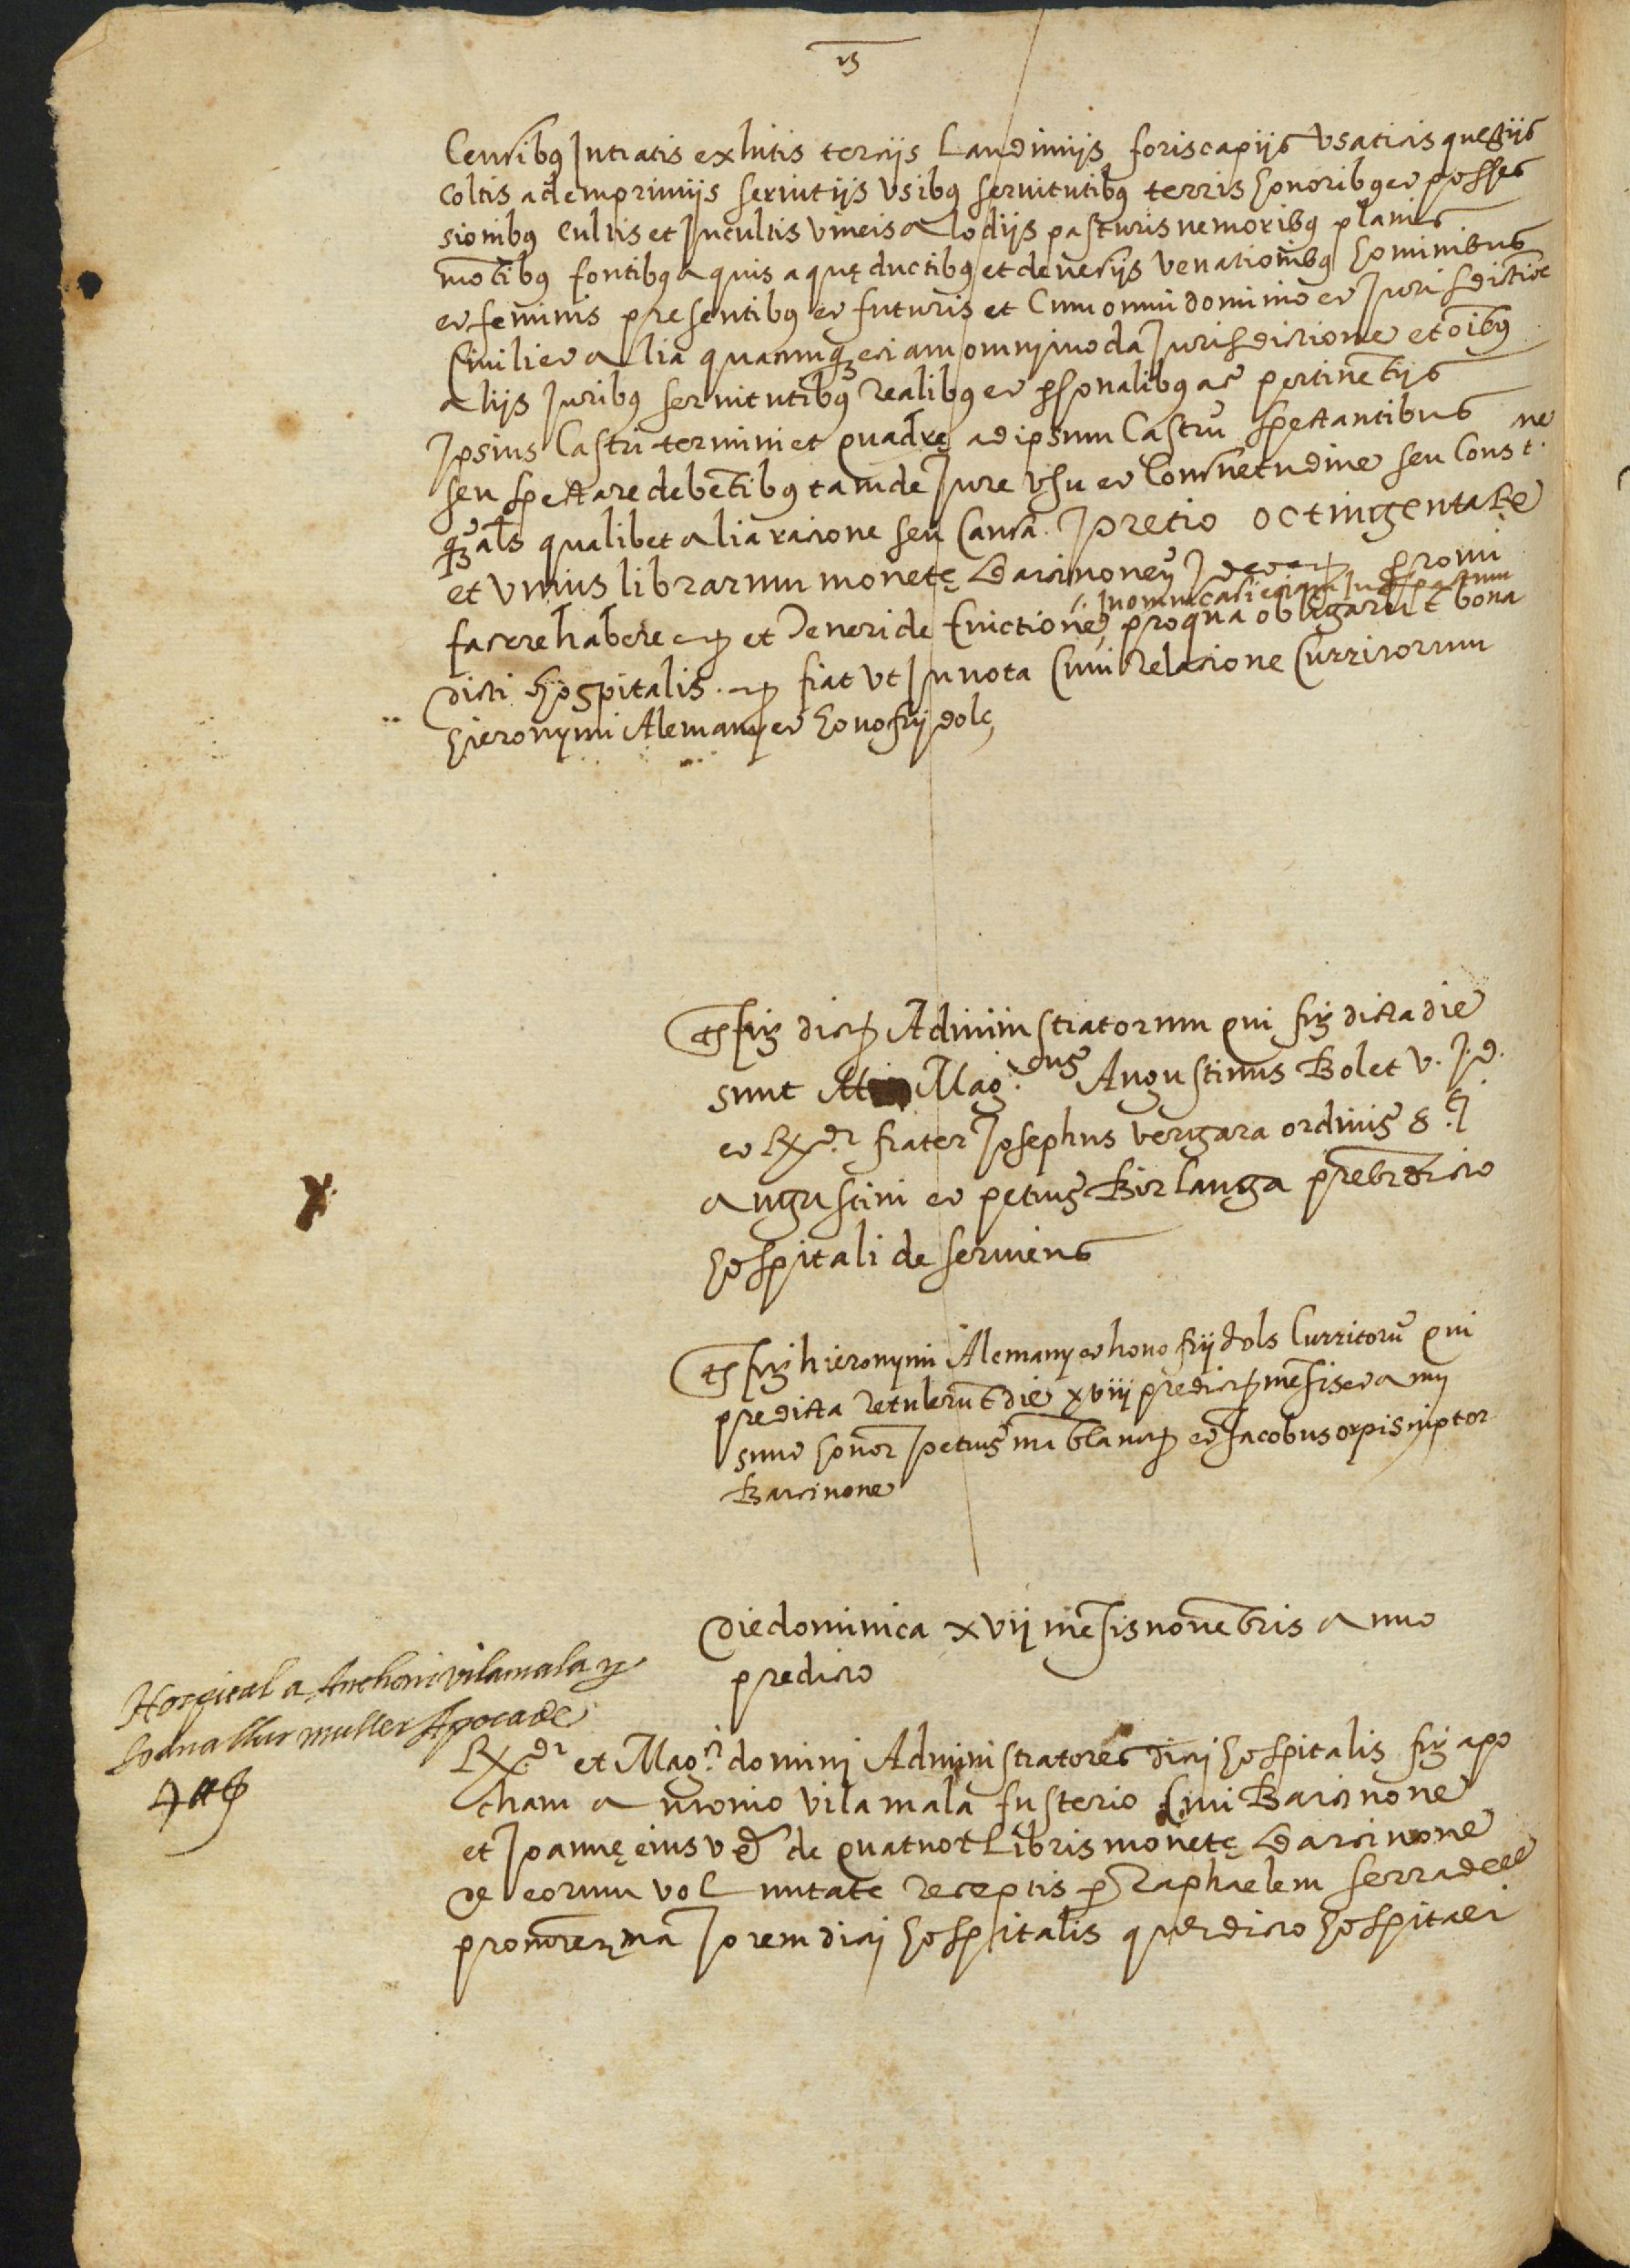 Censibus Intratis exhitis tercijs Laudimijs foriscapijs vsaticis questijs
coltis ademprimijs seruitijs vsibus seruitutibus terris honoribus et posses
sionibus cultis et Incultis vineis alodijs pasturis nemoribus planis
motibus fontibus aquis aquę ductibus et deuesijs venationibus hominibus
et feminis presentibus et futuris et Cum omni dominio et Jurisdictioe
Ciuili et alia quacumqz eciam omnymoda Jurisdictione et oibus
alijs Juribus seruitutibus realibus et psonalibus ac pertinetijs
Ipsius Castri termini et quadrę ad ipsum Castru spectantibus
seu spectare debetibus tam de Jure vsu et Consuetudine seu Const. ne
als qualibet alia racione seu Causa. precio octingenta
et vnius librarum monetę Barcinone promi
facere habere et teneri de Euictione pro qua obligarut bona
dicti hospitalis. fiat vt In nota Cum relacione Curritorum
hieronymi Alemany et honofrij dols
Ts fir dict Administratorum qui fir dicta die
sunt Mag. cus Augustinus Bolet v. J. d.
et Rx. dr frater Josephus vergara ordinis S. ti
augustini et petrus Birlanga prebr dicto
hospitali deseruiens
Ts fir hieronymi Alemany et honofrij dols Curritoru qui
predicta retulerut die xviij predict mesis et anni
sunt honor petrus et Jacobus orpi scriptor
Barcinone
Die dominica xvij mesis nouebris anno
predicto
Hospital a Anthoni vilamala y
Joana sa muller Apoca de
4 ll
Rx. dr et Mag. ci domini Administratores dicti hospitalis fir apo
cham antonio vilamala fusterio Ciui Barcinone
et Joannę eius vx de quatuor Libris monetę Barcinone
de eorum voluntate receptis p Raphaelem serradell
priorem dicti hospitalis dicto hospitali